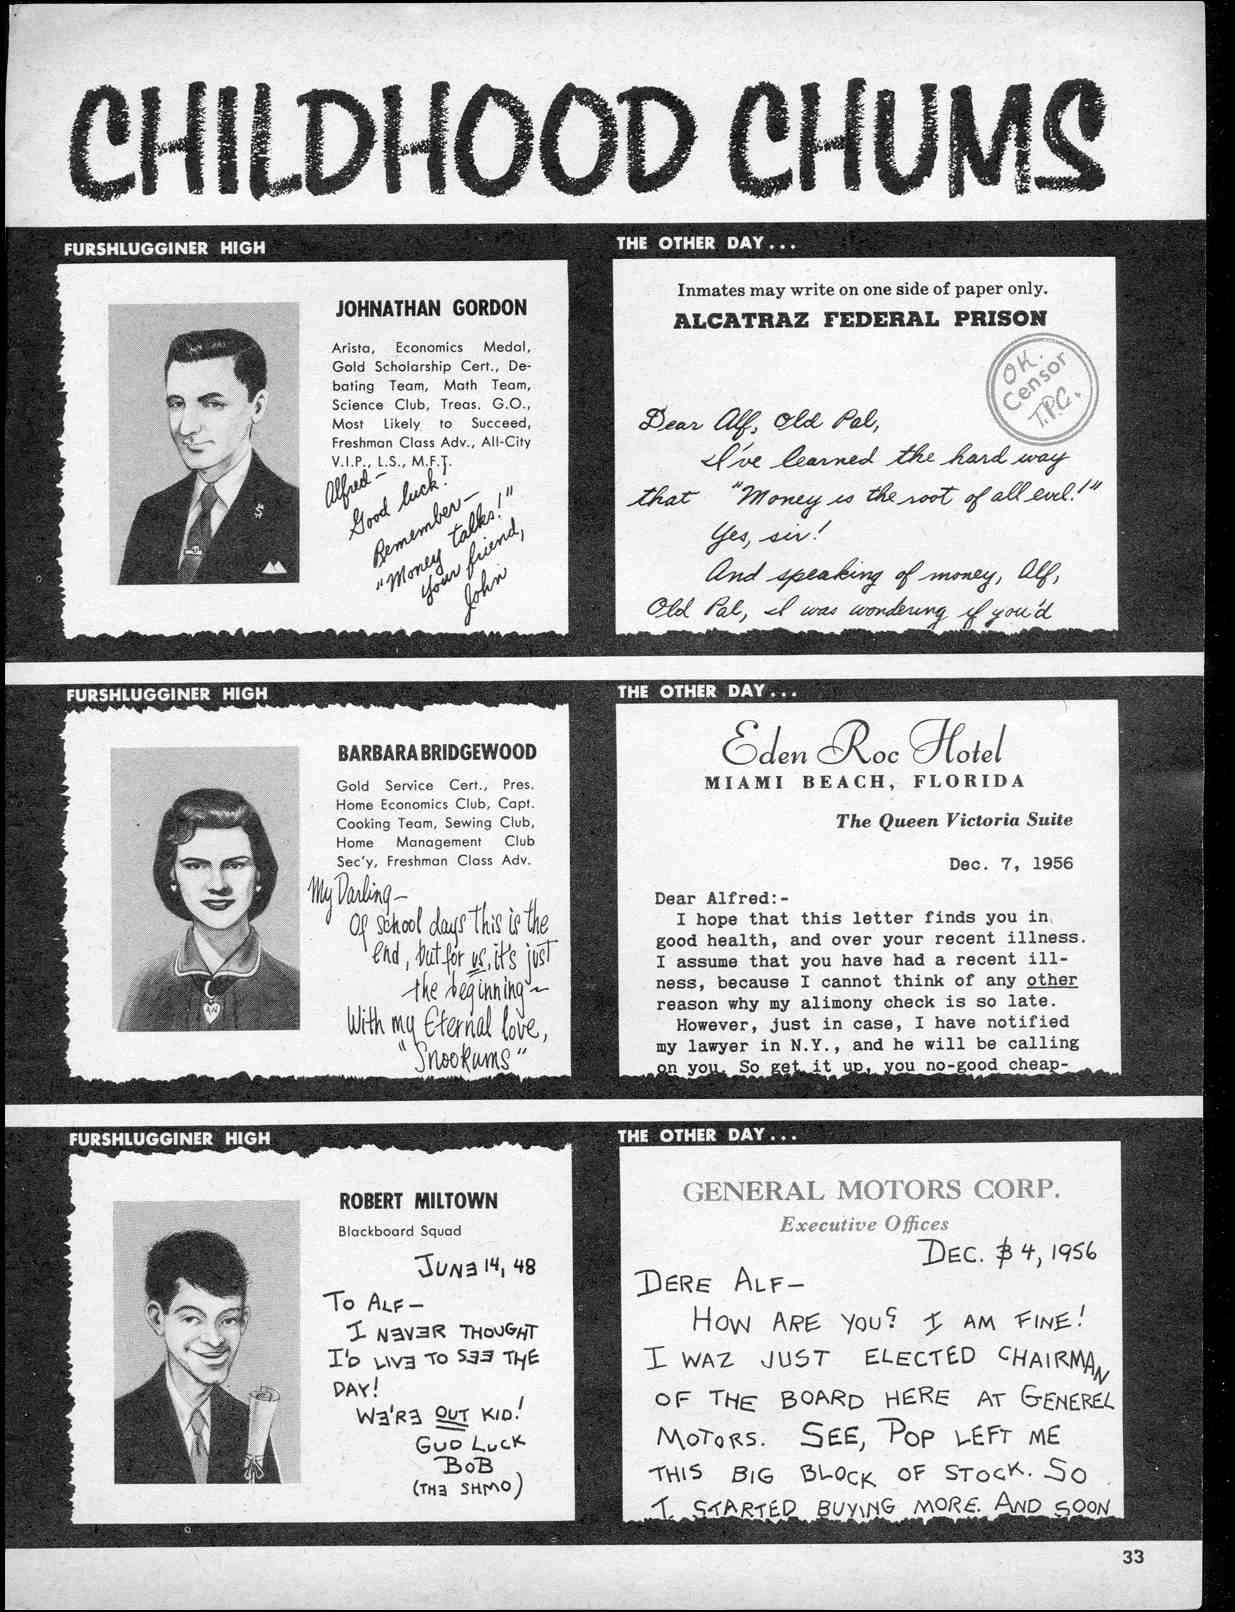 CHILDHOOD CHUMS
FURSHLUGGINER HIGH
JOHNATHAN GORDON
Arista, Economics Medal,
Gold Scholarship Cert., De-
bating Team, Math Team,
Science Club, Treas. G.O.,
Most Likely to Succeed,
Freshman Class Adv., All-City
V.I.P., L.S., M.F.T.
Alfred—
Good luck!
Remember—
"Money talks!"
Your friend,
John
THE OTHER DAY...
Inmates may write on one side of paper only.
ALCATRAZ FEDERAL PRISON
OK.
Censor
T.P.C.
Dear Alf, Old Pal,
I've learned the hard way
that "Money is the root of all evil!"
Yes, sir!
And speaking of money, Alf,
Old Pal, I was wondering if you'd
FURSHLUGGINER HIGH
BARBARA BRIDGEWOOD
Gold Service Cert., Pres.
Home Economics Club, Capt.
Cooking Team, Sewing Club,
Home Management Club
Sec'y, Freshman Class Adv.
My Darling—
Of school days this is the
end, but for us, it's just
the beginning~
With my Eternal love,
"Snookums"
THE OTHER DAY...
Eden Roc Hotel
MIAMI BEACH, FLORIDA
The Queen Victoria Suite
Dec. 7, 1956
Dear Alfred:-
I hope that this letter finds you in
good health, and over your recent illness.
I assume that you have had a recent ill-
ness, because I cannot think of any other
reason why my alimony check is so late.
However, just in case, I have notified
my lawyer in N.Y., and he will be calling
on you. So get it up, you no-good cheap-
FURSHLUGGINER HIGH
ROBERT MILTOWN
Blackboard Squad
JUNE 14, 48
TO ALF—
I NEVER THOUGHT
I'D LIVE TO SEE THE
DAY!
WE'RE OUT KID!
GUD LUCK
BOB
(THE SHMO)
THE OTHER DAY...
GENERAL MOTORS CORP.
Executive Offices
DEC. 4, 1956
DERE ALF—
HOW ARE YOU? I AM FINE!
I WAZ JUST ELECTED CHAIRMAN
OF THE BOARD HERE AT GENEREL
MOTORS. SEE, POP LEFT ME
THIS BIG BLOCK OF STOCK. SO
I STARTED BUYING MORE. AND SOON
33